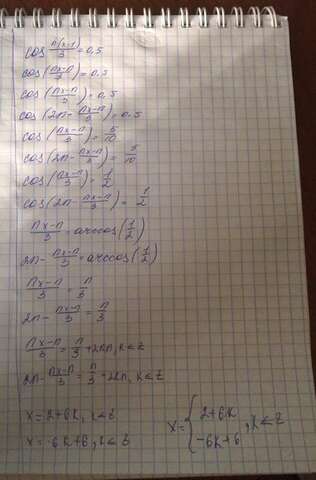 cos π(x-1)/3 = 0,5
cos(πx-π/3) = 0,5
cos(πx-π/3) = 0,5
cos(2π - πx-π/3) = 0,5
cos(πx-π/3) = 5/10
cos(2π - πx-π/3) = 5/10
cos(πx-π/3) = 1/2
cos(2π - πx-π/3) = 1/2
πx-π/3 = arccos(1/2)
2π - πx-π/3 = arccos(1/2)
πx-π/3 = π/3
2π - πx-π/3 = π/3
πx-π/3 = π/3 + 2kπ, k∈Z
2π - πx-π/3 = π/3 + 2kπ, k∈Z
x = 2+6k, k∈Z
x = -6k+6, k∈Z
x = { 2+6k
-6k+6 , k∈Z